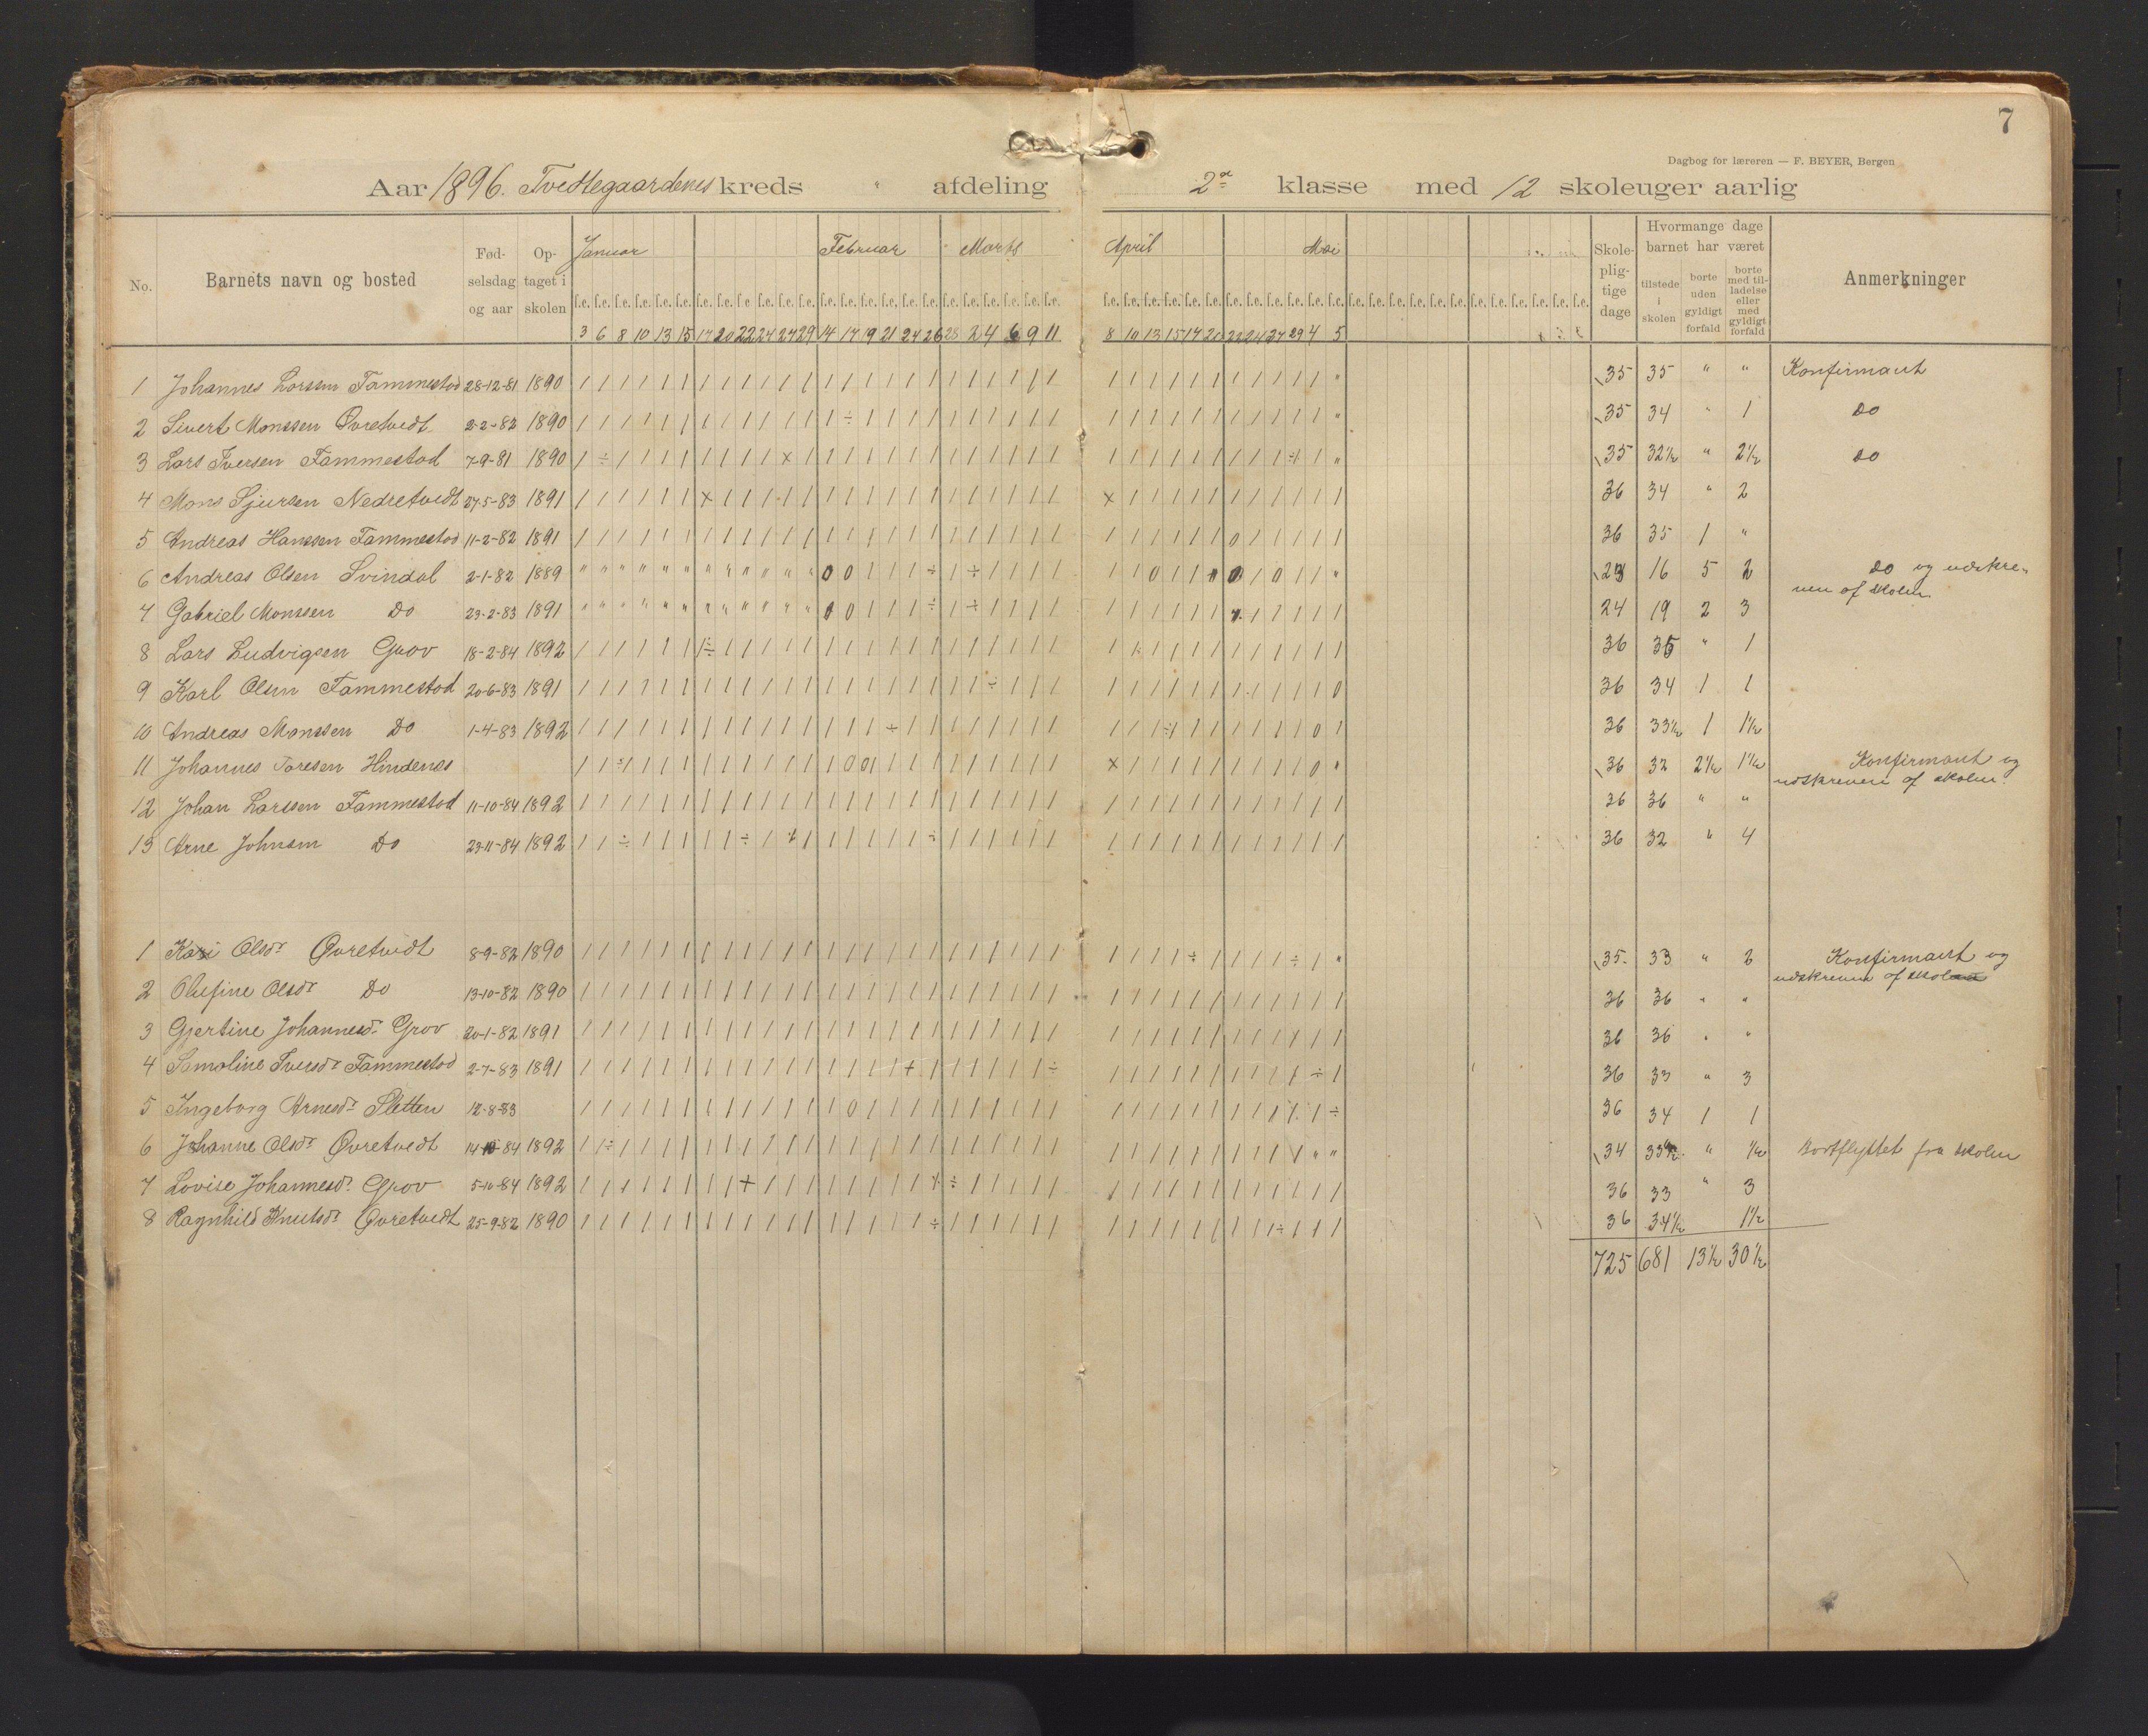 7
Dagbog for læreren — F. BEYER, Bergen
Aar 1896. Tvedtegaardenes kreds " afdeling 2den klasse med 12 skoleuger aarlig
No. Barnets navn og bosted Fød-selsdag og aar Op-taget i skolen Januar Februar Marts April Mai Skole-plig-tige dage Hvormange dage barnet har været Anmerkninger
tilstede i skolen borte uden gyldigt forfald borte med til-ladelse eller med gyldigt forfald
3 6 8 10 13 15 17 20 22 24 27 29 14 17 19 21 24 26 28 2 4 6 9 11 8 10 13 15 17 20 22 24 27 29 4 5
1 Johannes Larssen Tammestad 28-12-81 1890 35 35 " " Konfirmant
2 Sivert Monssen Øvretvedt 2-2-82 1890 35 34 " 1 Do
3 Lars Iversen Fammestad 7-9-81 1890 35 32½ " 2½ Do
4 Mons Sjursen Nedretvedt 27-5-83 1891 36 34 " 2
5 Andreas Hanssen Fammestad 11-2-82 1891 36 35 1 "
6 Andreas Olsen Svindal 2-1-82 1889 23 16 5 2 Do og udskre-
ven af skolen
7 Gabriel Monssen Do 23-2-83 1891 24 19 2 3
8 Lars Ludvigsen Grov 18-2-84 1892 36 35 " 1
9 Karl Olsen Fammestad 20-6-83 1891 36 34 1 1
10 Andreas Monssen Do 1-4-83 1892 36 33½ 1 1½
11 Johannes Toresen Hindenes 36 32 2½ 1½ Konfirmant og
udskreven af skolen
12 Johan Larssen Fammestad 11-10-84 1892 36 36 " "
13 Arne Johnsen Do 23-11-84 1892 36 32 " 4
1 Kari Olsdr Øvretvedt 8-9-82 1890 35 33 " 2 Konfirmant og
udskreven af skolen
2 Olufine Olsdr Do 13-10-82 1890 36 36 " "
3 Gjertine Johannesdr Grov 20-1-82 1891 36 36 " "
4 Samoline Iversdr Fammestad 2-7-83 1891 36 33 " 3
5 Ingeborg Arnesdr Sletten 12-8-83 36 34 1 1
6 Johanne Olsdr Øvretvedt 14-10-84 1892 34 33½ " ½ Bortflyttet fra skolen
7 Lovise Johannesdr Grov 5-10-84 1892 36 33 " 3
8 Ragnhild Knutsdr Øvretvedt 25-9-82 1890 36 34½ 1½
725 681 13½ 30½